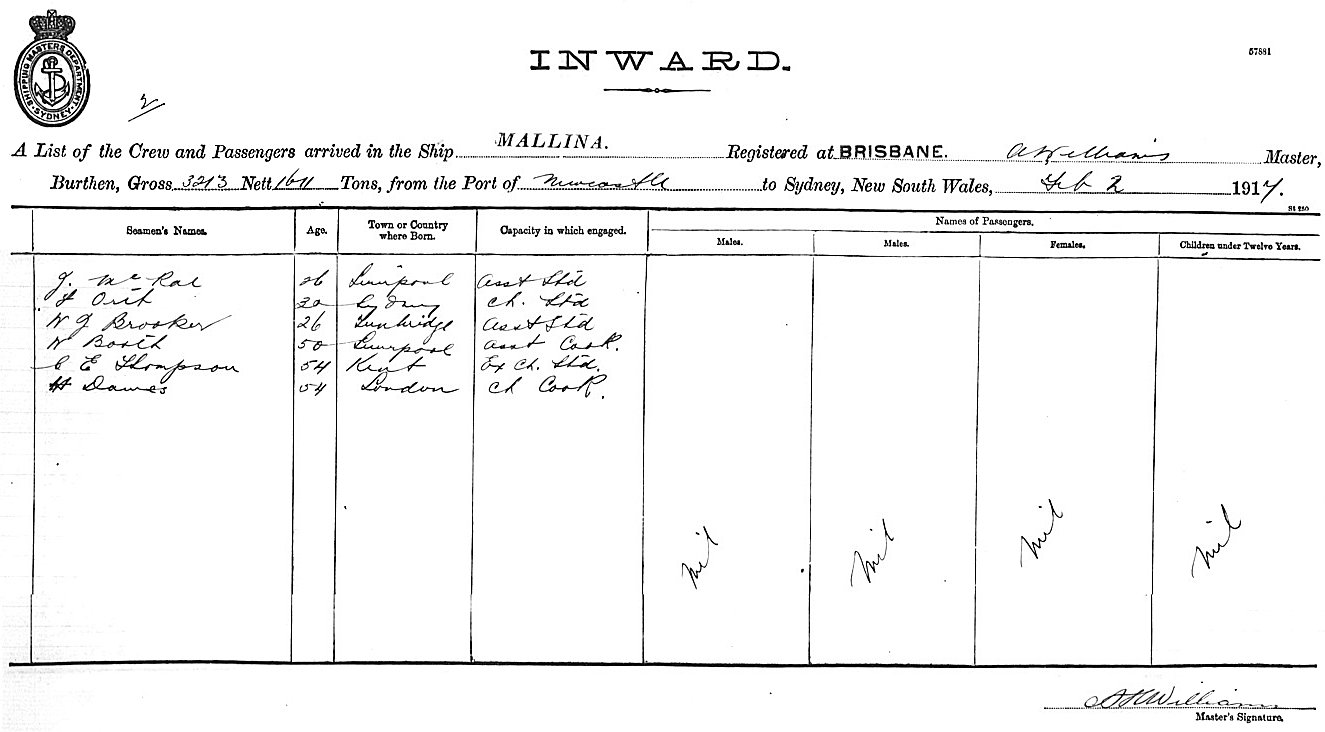 SHIPPING MASTERS DEPARTMENT SYDNEY
INWARD.
57881
2
A List of the Crew and Passengers arrived in the Ship MALLINA. Registered at BRISBANE. A Williams Master,
Burthen, Gross 3213 Nett 1611 Tons, from the Port of Newcastle to Sydney, New South Wales, Feb 2 1917.
Seamen's Names. Age. Town or Country where Born. Capacity in which engaged. Names of Passengers.
Males. Males. Females. Children under Twelve Years.
J. McRae 26 Liverpool Asst Std
Orit 30 Sydney Ch. Std
W J Brooker 26 Tunbridge Asst Std
W Booth 50 Liverpool Asst Cook.
C E Thompson 54 Kent Ex Ch. Std.
H Dawes 54 London Ch Cook.
Nil Nil Nil Nil
Williams
Master's Signature.